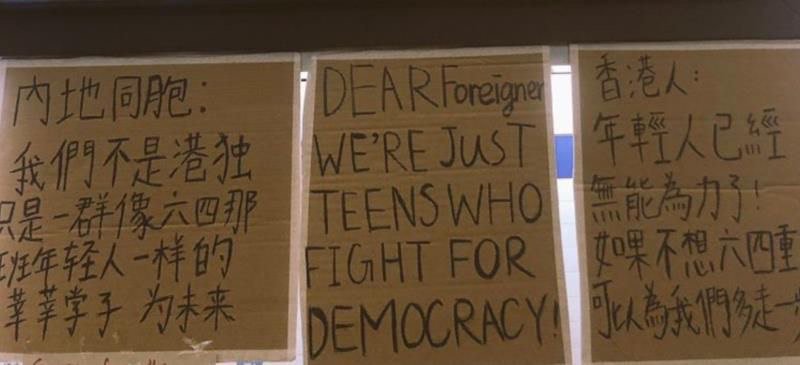 內地同胞:
我們不是港独
只是一群像六四那
班年轻人一样的
莘莘学子 为未来
DEAR Foreigner
WE'RE JUST
TEENS WHO
FIGHT FOR
DEMOCRACY!
香港人:
年輕人已經
無能為力了!
如果不想六四重
可以為我們多走一步